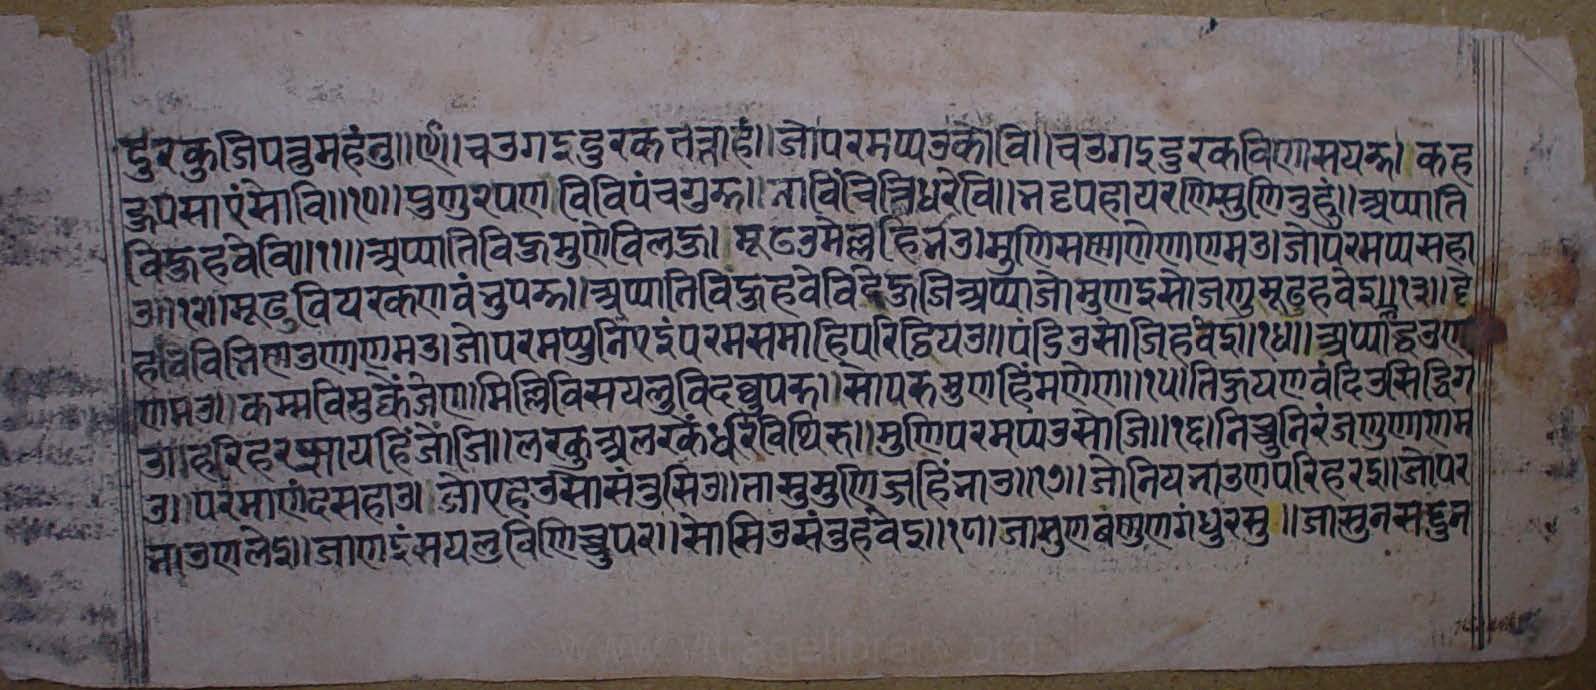 दुरकुजिपत्तुमहंतु॥९॥चउगइदुरकतत्ताहं॥जोपरमप्पउकोवि॥चउगइदुरकविणासयरु॥कहहु
पसाएंसोवि॥१०॥पुणुपुणुपणविविपंचगुरु॥भाविंचित्तिधरेवि॥भट्टपहायरणिसुणितुहुं॥अप्पाति
विहुकहवेवि॥११॥अप्पातिविहुमुणेविलहु॥मूढउमेल्लहिभाउ॥मुणिसण्णाणेंणाणमउ॥जोपरमप्पसहा
उ॥१२॥मूढुवियरकणवंभुपरु॥अप्पातिविहुहवेवि॥देहुजिअप्पाजोमुणइसोजणुमूढुहवेइ॥१३॥दे
हविभिण्णउणाणमउ॥जोपरमप्पुनिएइंपरमसमाहिपरिट्ठियउ॥पंडिउसोजिहवेइ॥१४॥अप्पालद्धउणा
णमउ॥कम्मविमुक्केंजेण॥मिल्लिविसयलुविदव्वुपरु॥सोपरुमुणहिंमणेण॥१५॥तिहुयणवंदिउसिद्धिग
उ॥हरिहरझायहिंजोजि॥लरकुअलरकेंधरिविथिरु॥मुणिपरमप्पउसोजि॥१६॥निच्चुनिरंजणुणाणम
उ॥परमाणंदसहाउ॥जोएहउसोसंतुसिउ॥तासुमुणिज्जहिंभाउ॥१७॥जोनियभाउणपरिहरइ॥जोपर
भाउणलेइ॥जाणइंसयलुविणिच्चुपर॥सोसिउसंतुहवेइ॥१८॥जासुणवंणुणगंधुरसु॥जासुनसद्दुन